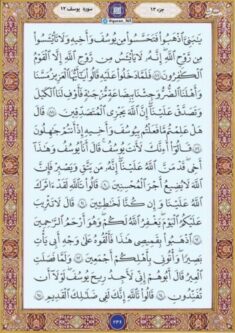 جزء ١٣
سوره یوسف ١٢
یَـٰبَنِیَّ ٱذْهَبُوا۟ فَتَحَسَّسُوا۟ مِن یُوسُفَ وَأَخِیهِ وَلَا تَا۟یْـَٔسُوا۟
مِن رَّوْحِ ٱللَّهِ إِنَّهُۥ لَا یَا۟یْـَٔسُ مِن رَّوْحِ ٱللَّهِ إِلَّا ٱلْقَوْمُ
ٱلْكَـٰفِرُونَ ٨٧ فَلَمَّا دَخَلُوا۟ عَلَیْهِ قَالُوا۟ یَـٰٓأَیُّهَا ٱلْعَزِیزُ مَسَّنَا
وَأَهْلَنَا ٱلضُّرُّ وَجِئْنَا بِبِضَـٰعَةٍ مُّزْجَىٰةٍ فَأَوْفِ لَنَا ٱلْكَیْلَ
وَتَصَدَّقْ عَلَیْنَآ إِنَّ ٱللَّهَ یَجْزِی ٱلْمُتَصَدِّقِینَ ٨٨ قَالَ
هَلْ عَلِمْتُم مَّا فَعَلْتُم بِیُوسُفَ وَأَخِیهِ إِذْ أَنتُمْ جَـٰهِلُونَ
٨٩ قَالُوٓا۟ أَءِنَّكَ لَأَنتَ یُوسُفُ قَالَ أَنَا۠ یُوسُفُ وَهَـٰذَآ
أَخِی قَدْ مَنَّ ٱللَّهُ عَلَیْنَآ إِنَّهُۥ مَن یَتَّقِ وَیَصْبِرْ فَإِنَّ
ٱللَّهَ لَا یُضِیعُ أَجْرَ ٱلْمُحْسِنِینَ ٩٠ قَالُوا۟ تَٱللَّهِ لَقَدْ ءَاثَرَكَ
ٱللَّهُ عَلَیْنَا وَإِن كُنَّا لَخَـٰطِـِٔینَ ٩١ قَالَ لَا تَثْرِیبَ
عَلَیْكُمُ ٱلْیَوْمَ یَغْفِرُ ٱللَّهُ لَكُمْ وَهُوَ أَرْحَمُ ٱلرَّٰحِمِینَ
٩٢ ٱذْهَبُوا۟ بِقَمِیصِی هَـٰذَا فَأَلْقُوهُ عَلَىٰ وَجْهِ أَبِی یَأْتِ
بَصِیرًا وَأْتُونِی بِأَهْلِكُمْ أَجْمَعِینَ ٩٣ وَلَمَّا فَصَلَتِ
ٱلْعِیرُ قَالَ أَبُوهُمْ إِنِّی لَأَجِدُ رِیحَ یُوسُفَ لَوْلَآ أَن
تُفَنِّدُونِ ٩٤ قَالُوا۟ تَٱللَّهِ إِنَّكَ لَفِی ضَلَـٰلِكَ ٱلْقَدِیمِ ٩٥
٢٤٦